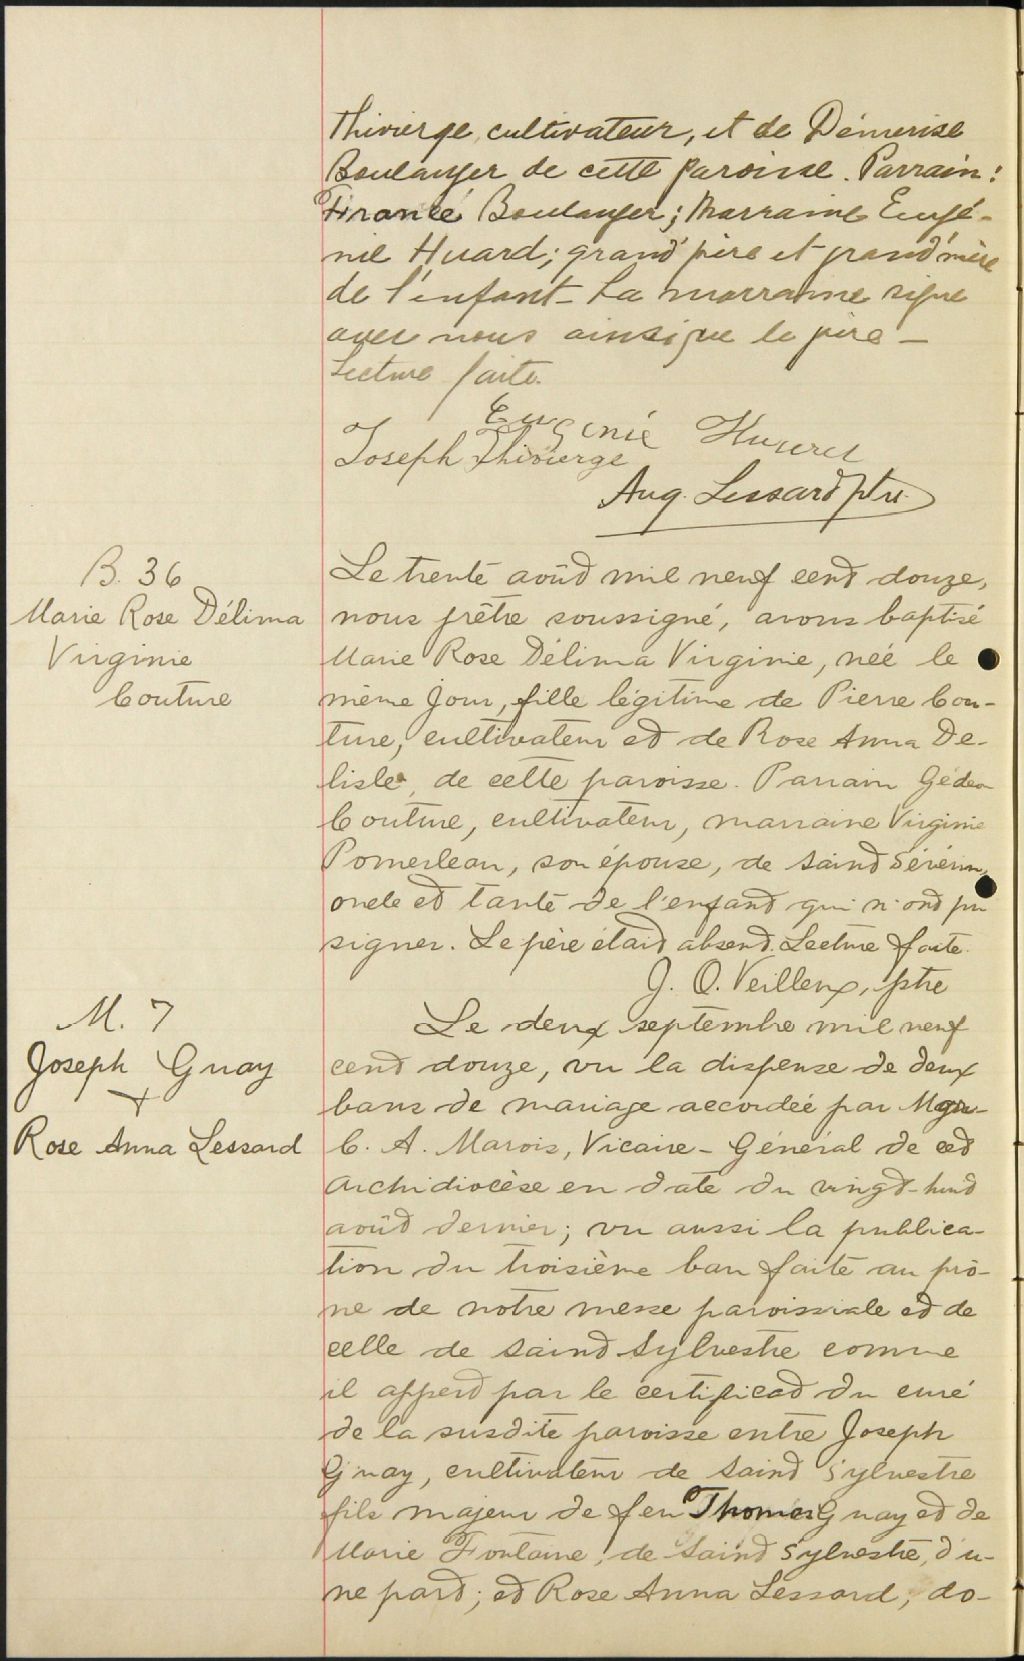 Thivierge, cultivateur, et de Démerise
Boulanger de cette paroisse. Parrain:
Boulanger; Marraine Eugé-
nie Huard; grand'père et grand'mère
de l'enfant – La marraine signe
avec nous ainsi que le père –
Lecture faite.
Eugénie Huard
Joseph Thivierge
Aug. Lessard ptre
B. 36
Marie Rose Délima
Virginie
Couture
Le trente août mil neuf cent douze,
nous prêtre soussigné, avons baptisé
Marie Rose Délima Virginie, née le
même jour, fille légitime de Pierre Cou-
ture, cultivateur et de Rose Anna De-
lisle, de cette paroisse. Parrain Gédéon
Couture, cultivateur, marraine Virginie
Pomerleau, son épouse, de Saint Séverin,
oncle et tante de l'enfant qui n'ont pu
signer. Le père était absent. Lecture faite.
J. O. Veilleux, ptre
M. 7
Joseph Guay
+
Rose Anna Lessard
Le deux septembre mil neuf
cent douze, vu la dispense de deux
bans de mariage accordée par Mgr
C. A. Marois, Vicaire-Général de cet
Archidiocèse en date du vingt-huit
août dernier; vu aussi la publica-
tion du troisième ban faite au prô-
ne de notre messe paroissiale et de
celle de Saint Sylvestre comme
il appert par le certificat du curé
de la susdite paroisse entre Joseph
Guay, cultivateur de Saint Sylvestre
fils majeur de feu Thomas Guay et de
Marie Fontaine, de Saint Sylvestre, d'u-
ne part; et Rose Anna Lessard, do-